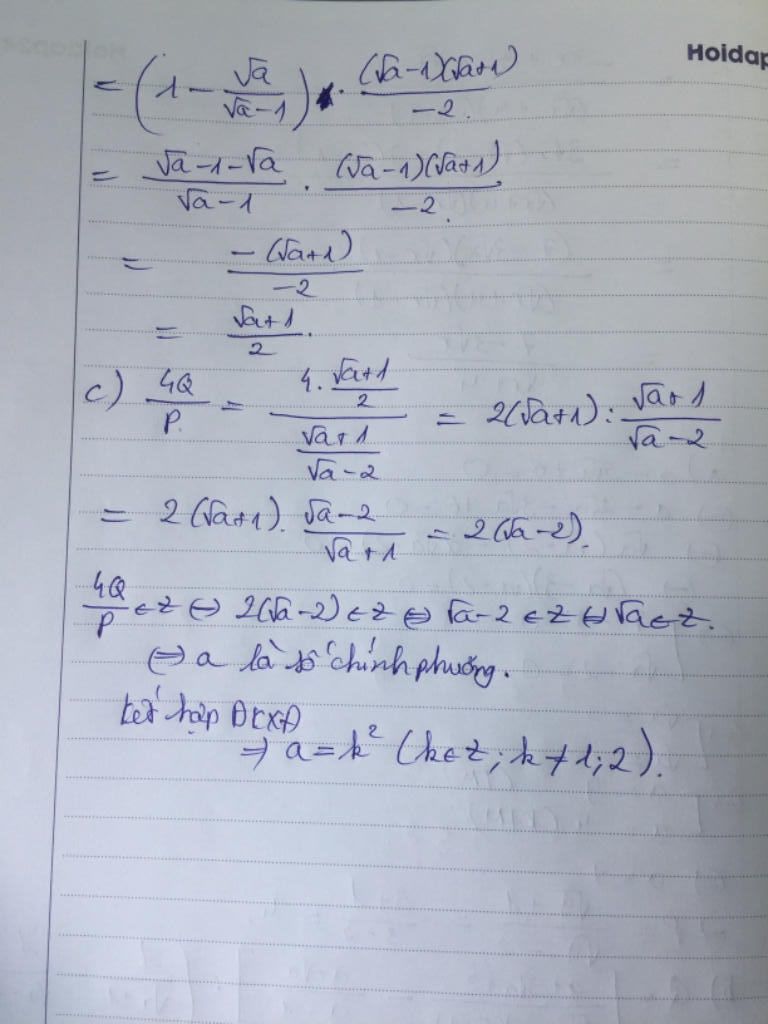 Hoidap
= (1 - √a/(√a-1)) · (√a-1)(√a+1)/-2
= (√a-1-√a)/(√a-1) · (√a-1)(√a+1)/-2
= -(√a+1)/-2
= (√a+1)/2.
c) 4Q/P = (4·(√a+1)/2)/((√a+1)/(√a-2)) = 2(√a+1) : (√a+1)/(√a-2)
= 2(√a+1) · (√a-2)/(√a+1) = 2(√a-2).
4Q/P ∈ Z ⇔ 2(√a-2) ∈ Z ⇔ √a-2 ∈ Z ⇔ √a ∈ Z.
⇔ a là số chính phương.
Kết hợp ĐKXĐ
⇒ a = k² (k ∈ Z; k ≠ 1; 2).